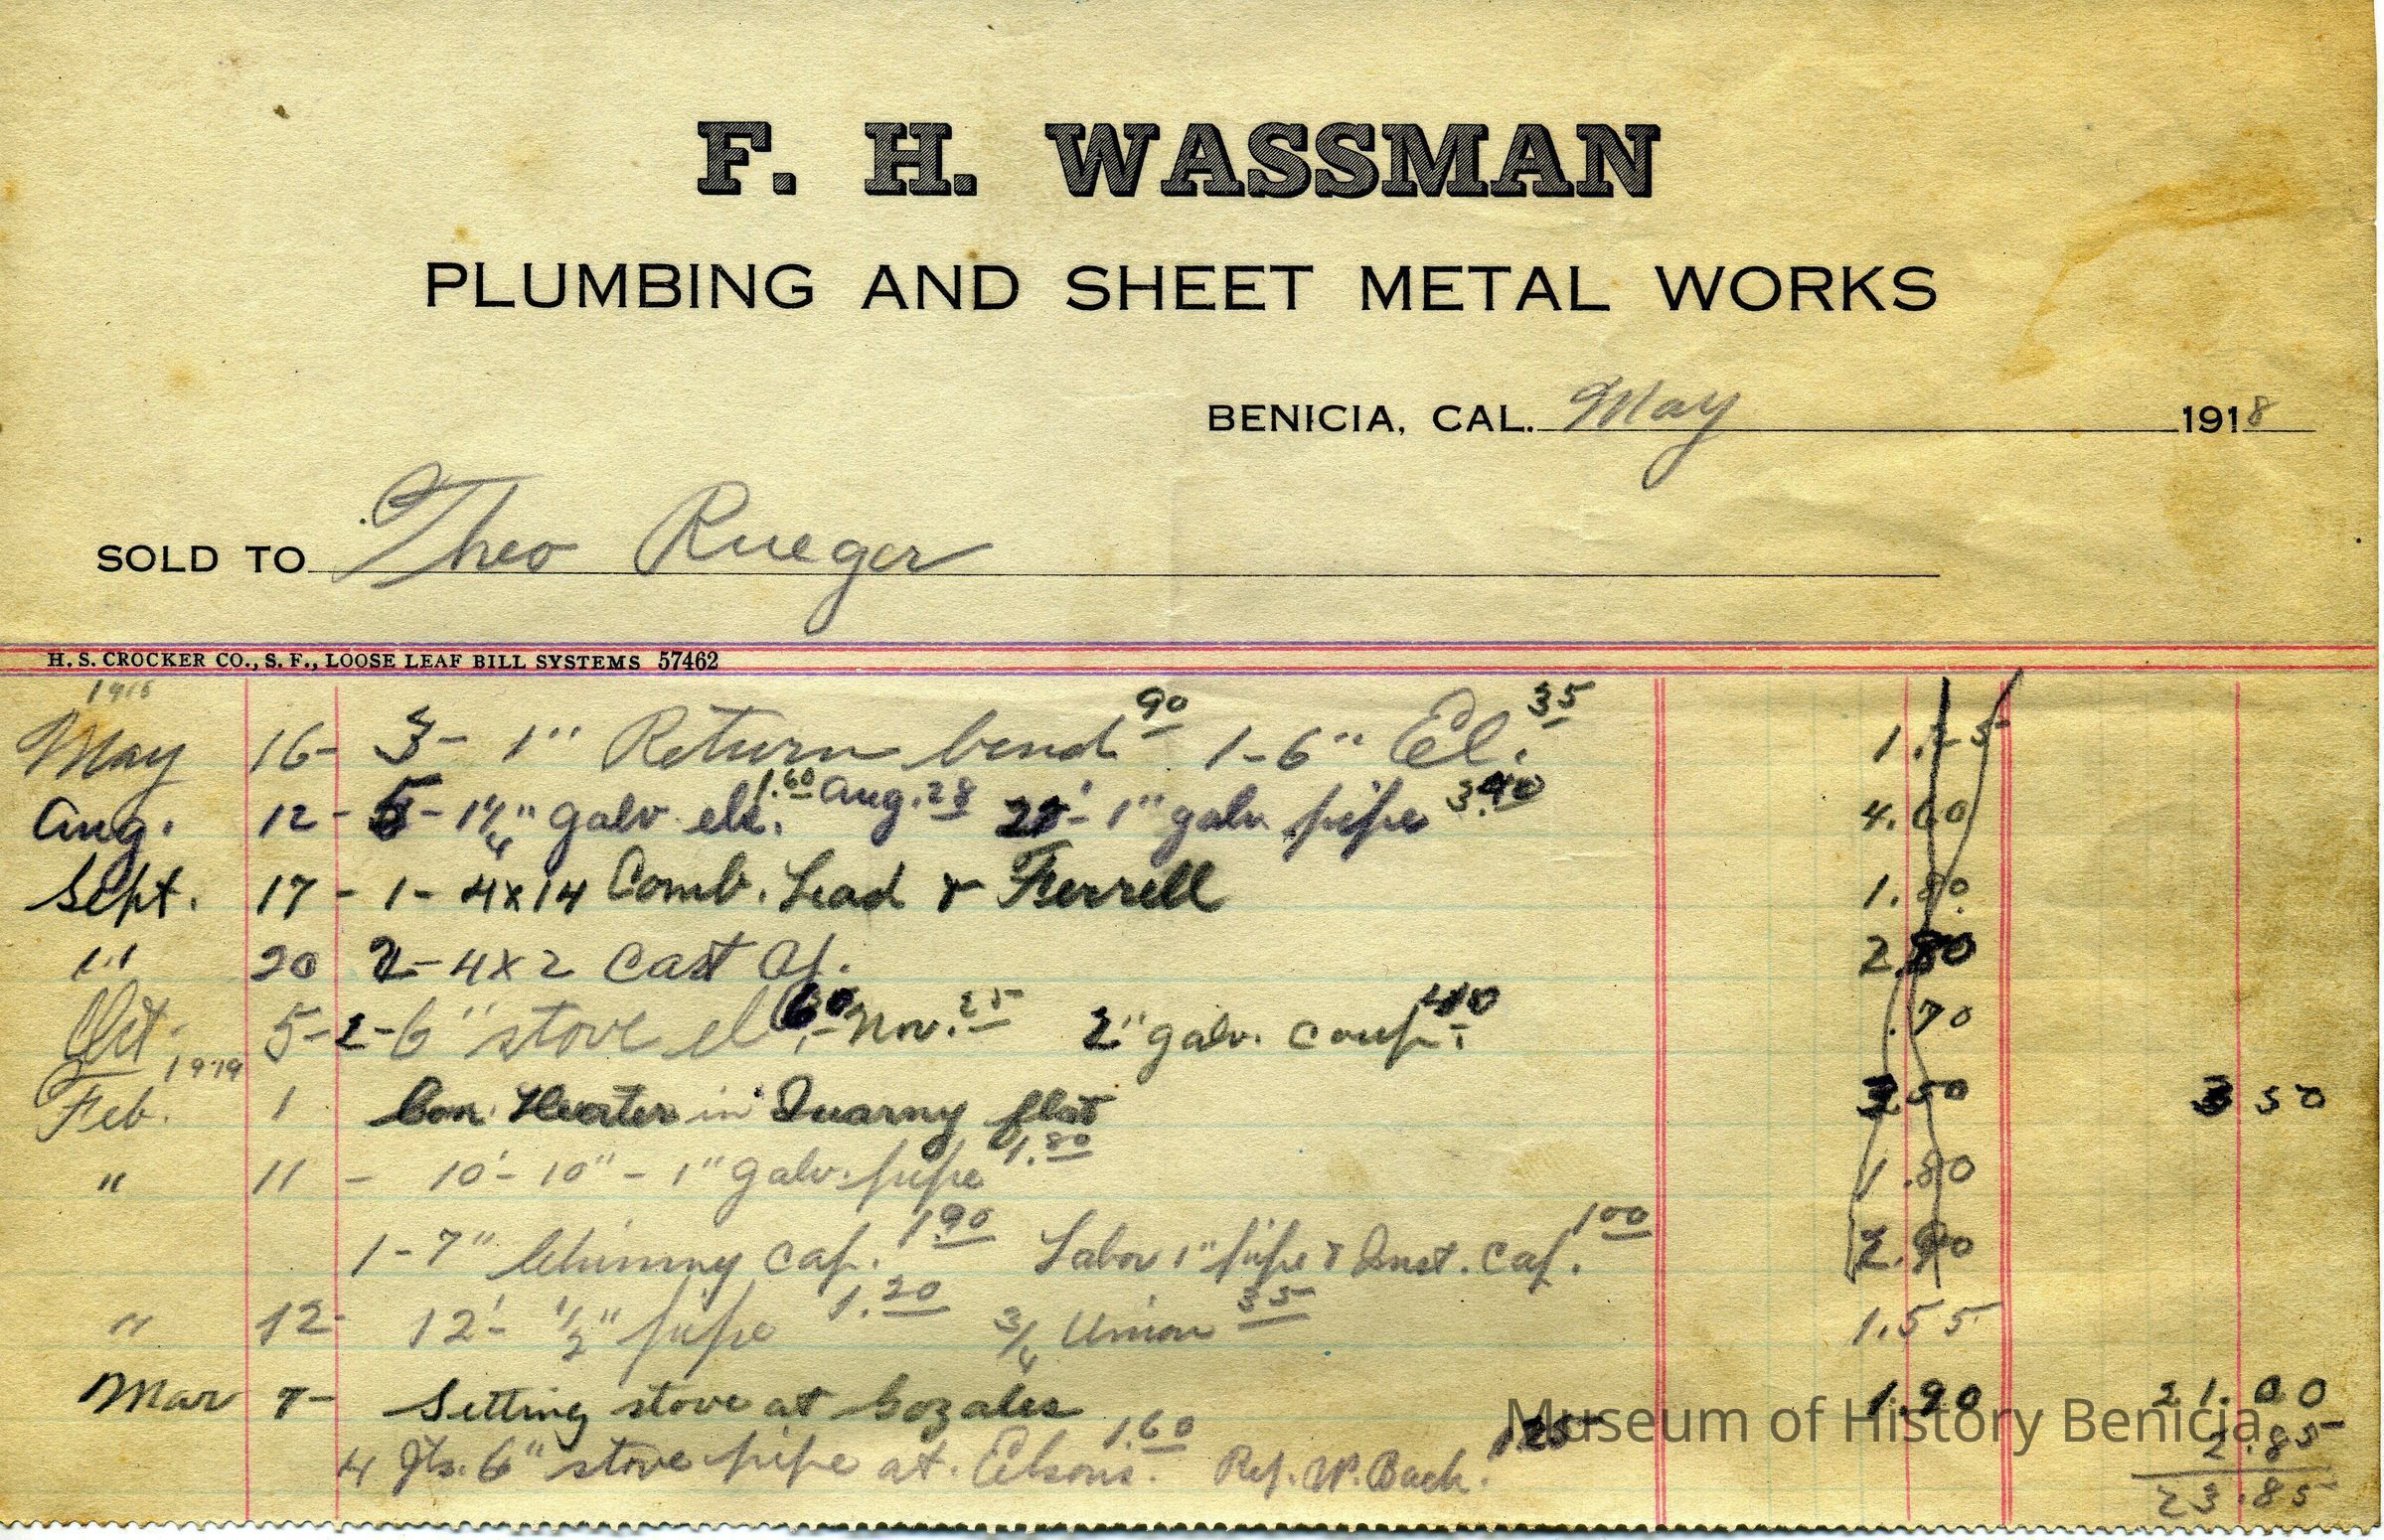 F. H. WASSMAN
PLUMBING AND SHEET METAL WORKS
BENICIA, CAL. May 1918
SOLD TO Theo Rueger
H. S. CROCKER CO., S. F., LOOSE LEAF BILL SYSTEMS 57462
1918
May 16- 3- 1" Return bend 90 1-6" El. 35 1.25
Aug. 12- 5- 1 1/4" galv els. 1.60 Aug. 28 1" galv. pipe 3.40
Sept. 17- 1- 4x14 Comb. Lead & Ferrell 1.80
" 20 2- 4x2 Cast 2.80
Oct. 5- 2- 6" stove el 60 Nov. 25 2" galv. coup. .70
1919
Feb. 1 Con. Heater in Quarny flat 3.50 3 50
" 11 - 10'- 10" - 1" galv. pipe 1.80 1.80
1-7" Chimny cap. 1.90 Labor 1" pipe & Inst. cap. 1.00 2.90
" 12- 12'- 1/2" pipe 1.20 3/4 Union 35 1.55
Mar 7- Setting stove at Gozales 1.90 21.00
4 Jts. 6" stove pipe at 1.60 Rep. W. Bach. 1.25 2.85
23.85
Museum of History Benicia